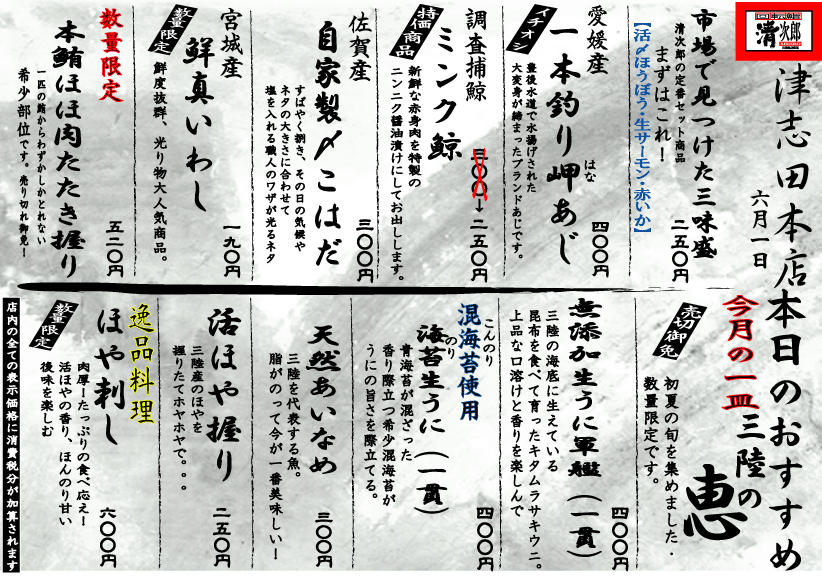 清次郎
津志田本店
六月一日
本日のおすすめ
市場で見つけた三味盛
まずはこれ！
清次郎の定番セット商品
【活〆ほうぼう・生サーモン・赤いか】
二五〇円
愛媛産
イチオシ
一本釣り岬あじ
はな
豊後水道で水揚げされた
大変身が締まったブランドあじです。
四〇〇円
調査捕鯨
特価商品
ミンク鯨
新鮮な赤身肉を特製の
ニンニク醤油漬けにしてお出しします。
三〇〇→二五〇円
佐賀産
自家製〆こはだ
すばやく捌き、その日の気候や
ネタの大きさに合わせて
塩を入れる職人のワザが光るネタ
三〇〇円
宮城産
数量限定
鮮真いわし
鮮度抜群、光り物大人気商品。
一九〇円
数量限定
本鮪ほほ肉たたき握り
一匹の鮪からわずかしかとれない
希少部位です。売り切れ御免！
五二〇円
今月の一皿
三陸の
恵
売切御免
初夏の旬を集めました・
数量限定です。
無添加生うに軍艦（一貫）
三陸の海底に生えている
昆布を食べて育ったキタムラサキウニ。
上品な口溶けと香りを楽しんで
四〇〇円
混海苔使用
こんのり
海苔生うに（一貫）
のり
青海苔が混ざった
香り際立つ希少混海苔が
うにの旨さを際立てる。
四〇〇円
天然あいなめ
三陸を代表する魚。
脂がのって今が一番美味しい！
三〇〇円
活ほや握り
三陸産のほやを
握りたてホヤホヤで。。。
二五〇円
逸品料理
数量限定
ほや刺し
肉厚！たっぷりの食べ応え！
活ほやの香り、ほんのり甘い
後味を楽しむ
六〇〇円
店内の全ての表示価格に消費税分が加算されます